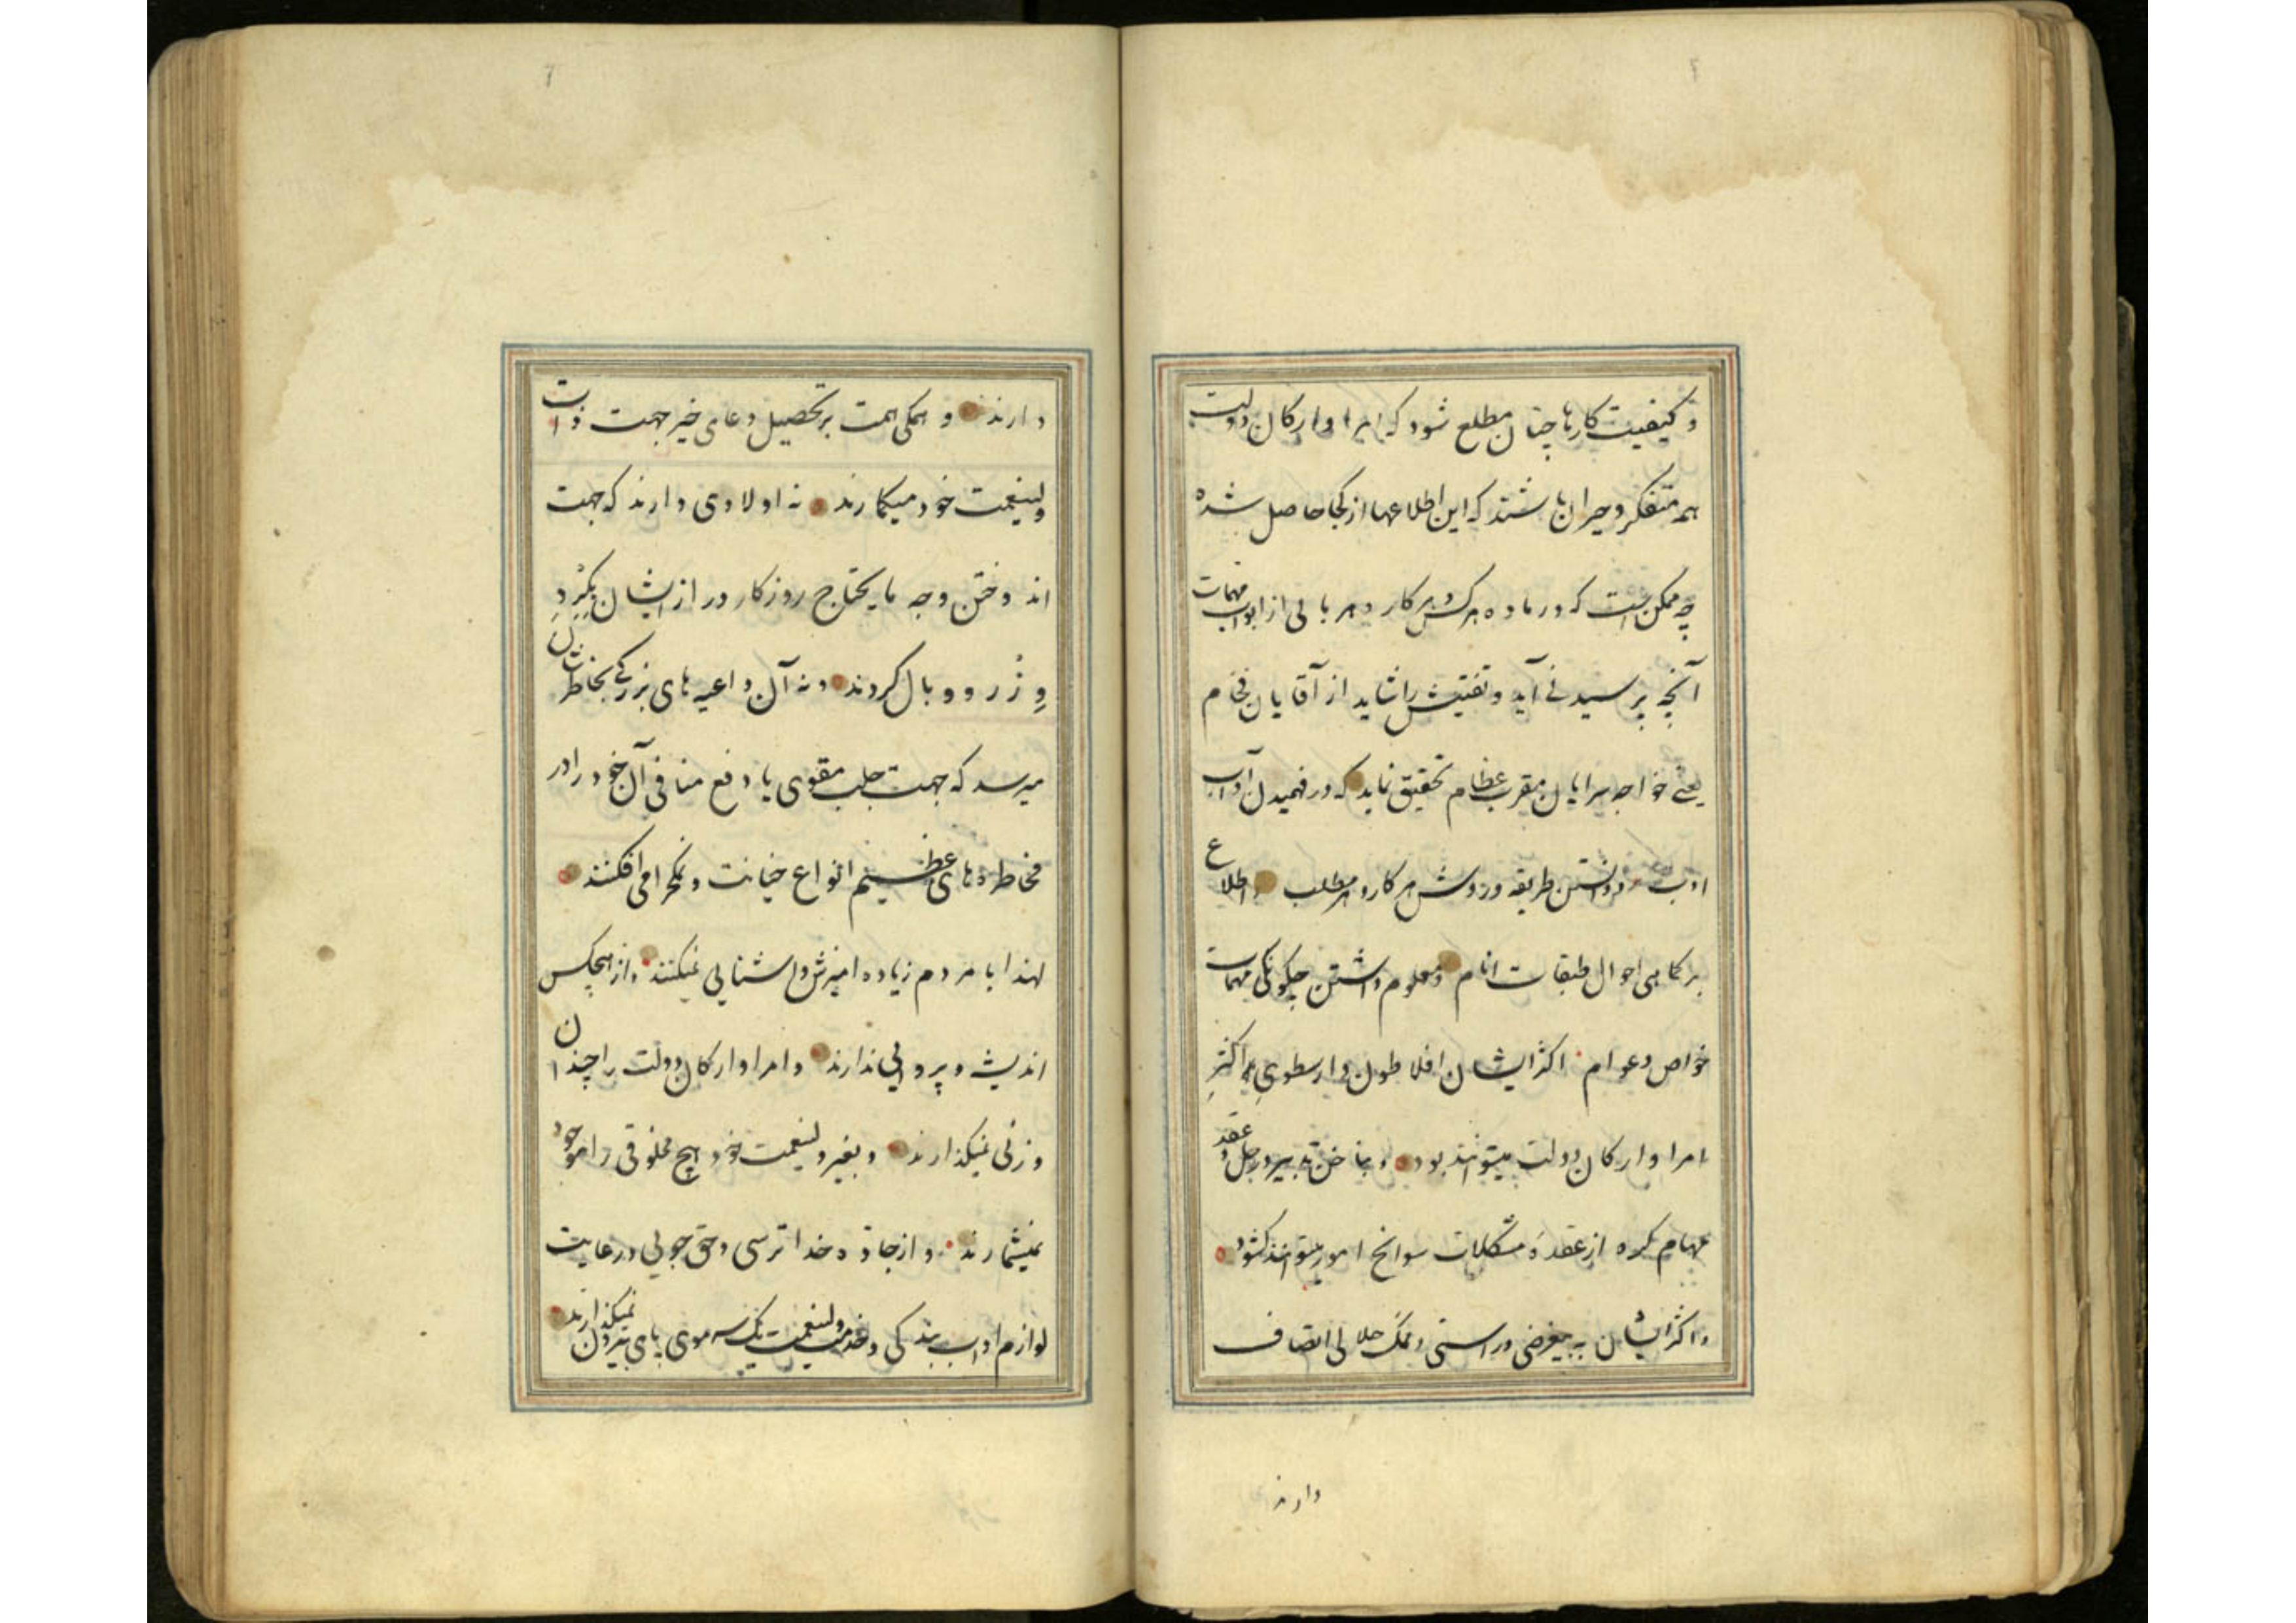 و کیفیت کارها چنان مطلع شود که امرا و ارکان دولت
همه متفکر و حیران باشند که این اطلاعها از کجا حاصل شده
چه ممکن است که در ماده هر کس و هر کار و هر بابی از ابواب مهمات
آنچه پرسیدنی آید و تفتیش را شاید از آقایان فخام
یعنی خواجه سرایان مقرب عظام تحقیق نماید که در فهمیدن آداب
ادب و دانستن طریقه و روش هر کار و هر مطلب و اطلاع
بر کماهی احوال طبقات انام و معلوم داشتن چگونگی مهمات
خواص و عوام اکثر ایشان افلاطون و ارسطوی اکثر
امرا و ارکان دولت میتوانند بود و بناخن تدبیر در حل و عقد
مهام گره از عقده مشکلات سوانح امور میتوانند کشود
و اکثر ایشان به بیغرضی و راستی و نمک حلالی اتصاف
دارند
دارند و همگی همت بر تحصیل دعای خیر جهت ذات
ولینعمت خود میگمارند نه اولادی دارند که جهت
اندوختن وجه مایحتاج روزکار دراز ایشان بگرد
وزر و وبال گردند و نه آن داعیه های بزرگ بخاطرشان
میرسد که جهت جلب مقوی یا دفع منافی آن خود را در
مخاطره های عظیم انواع خیانت و نمکحرامی افکنند
لهذا با مردم زیاده امیزش و اشنایی نمیکنند و از هیچکس
اندیشه و پروایی ندارند و امرا و ارکان دولت را چندان
وزنی نمیگذارند و بغیر ولینعمت خود هیچ مخلوقی را موجود
نمیشمارند و از جاده خدا ترسی و حق جویی و رعایت
لوازم اداب بندگی و خدمت ولینعمت یک سر موی پای بیرون نمیگذارند